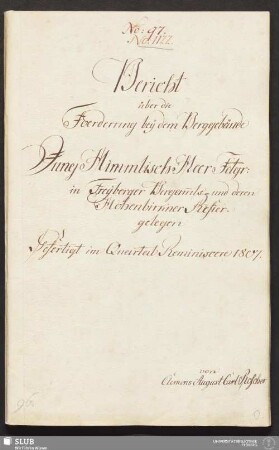 No: 97.
No. 1122.
Bericht
über die
Foerderung bey dem Berggebäude
Jung Himmlisch Heer Fdgr:
in Freyberger Bergamts- und deren
Hohenbirkner Refier
gelegen
Gefertigt im Quartal Reminiscere 1807.
von
Clemens August Carl Rescher
SLUB
Wir führen Wissen.